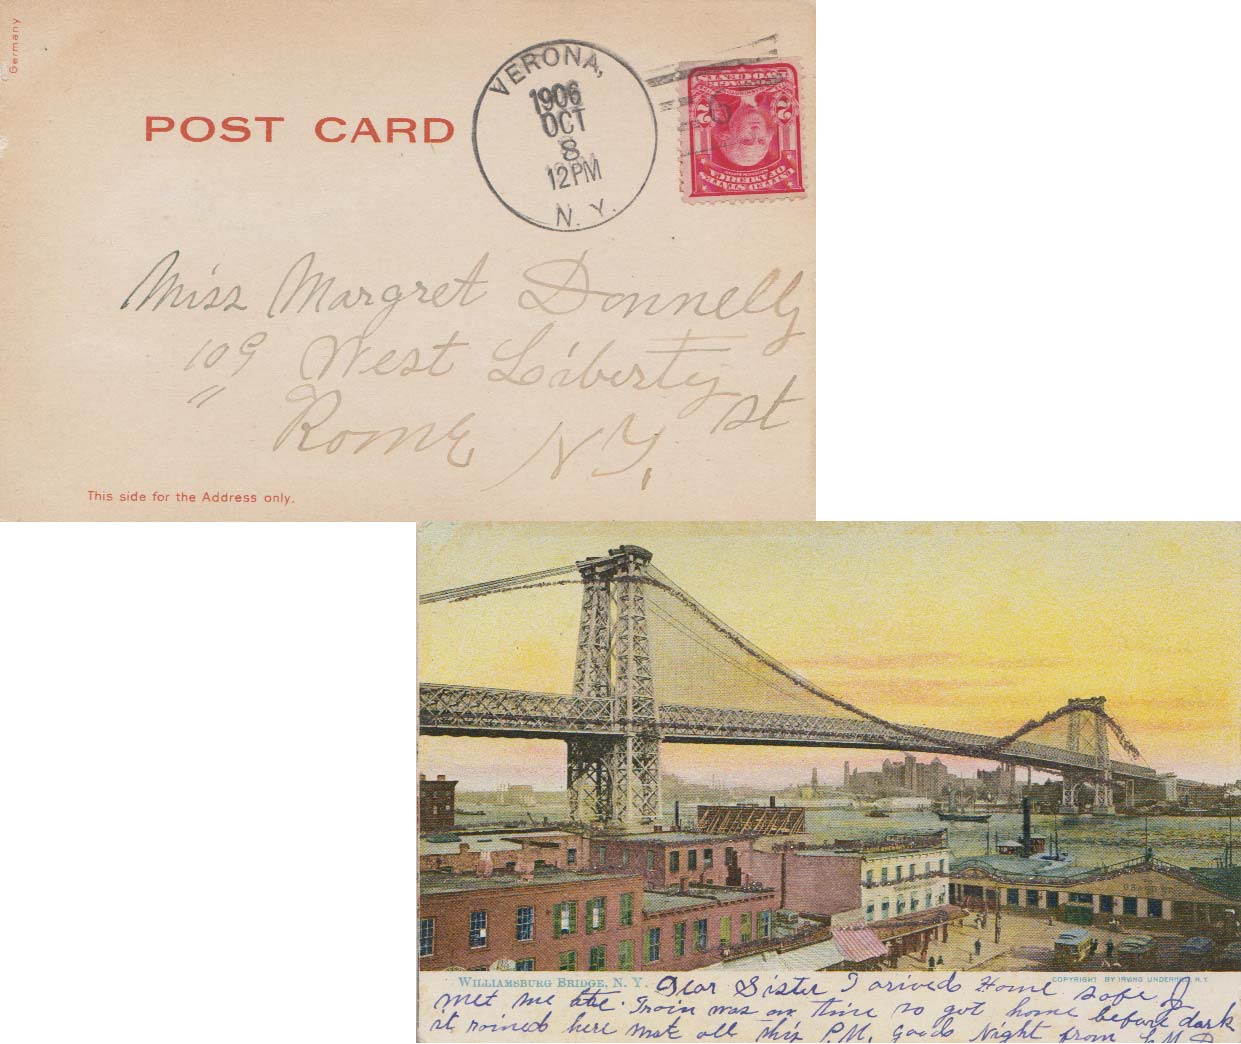 Germany
POST CARD
VERONA,
1906
OCT
8
12PM
N. Y.
2 2
TWO CENTS
UNITED STATES
OF AMERICA
Miss Margret Donnelly
109 West Liberty St
"
Rome N.Y.
This side for the Address only.
WILLIAMSBURG BRIDGE, N. Y.
COPYRIGHT BY IRVING UNDERHILL N.Y.
Dear Sister I arived Home safe J
met me. Train was on time so got home before dark
it rained here most all this P.M. Good Night from